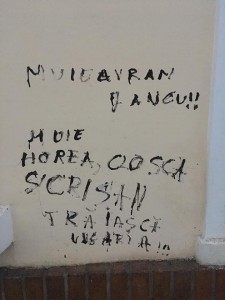 MUIE AVRAN
IANCU!!
MUIE
HOREA, CLOSCA
SI CRISAN
TRĂIASCĂ
UNGARIA !!!